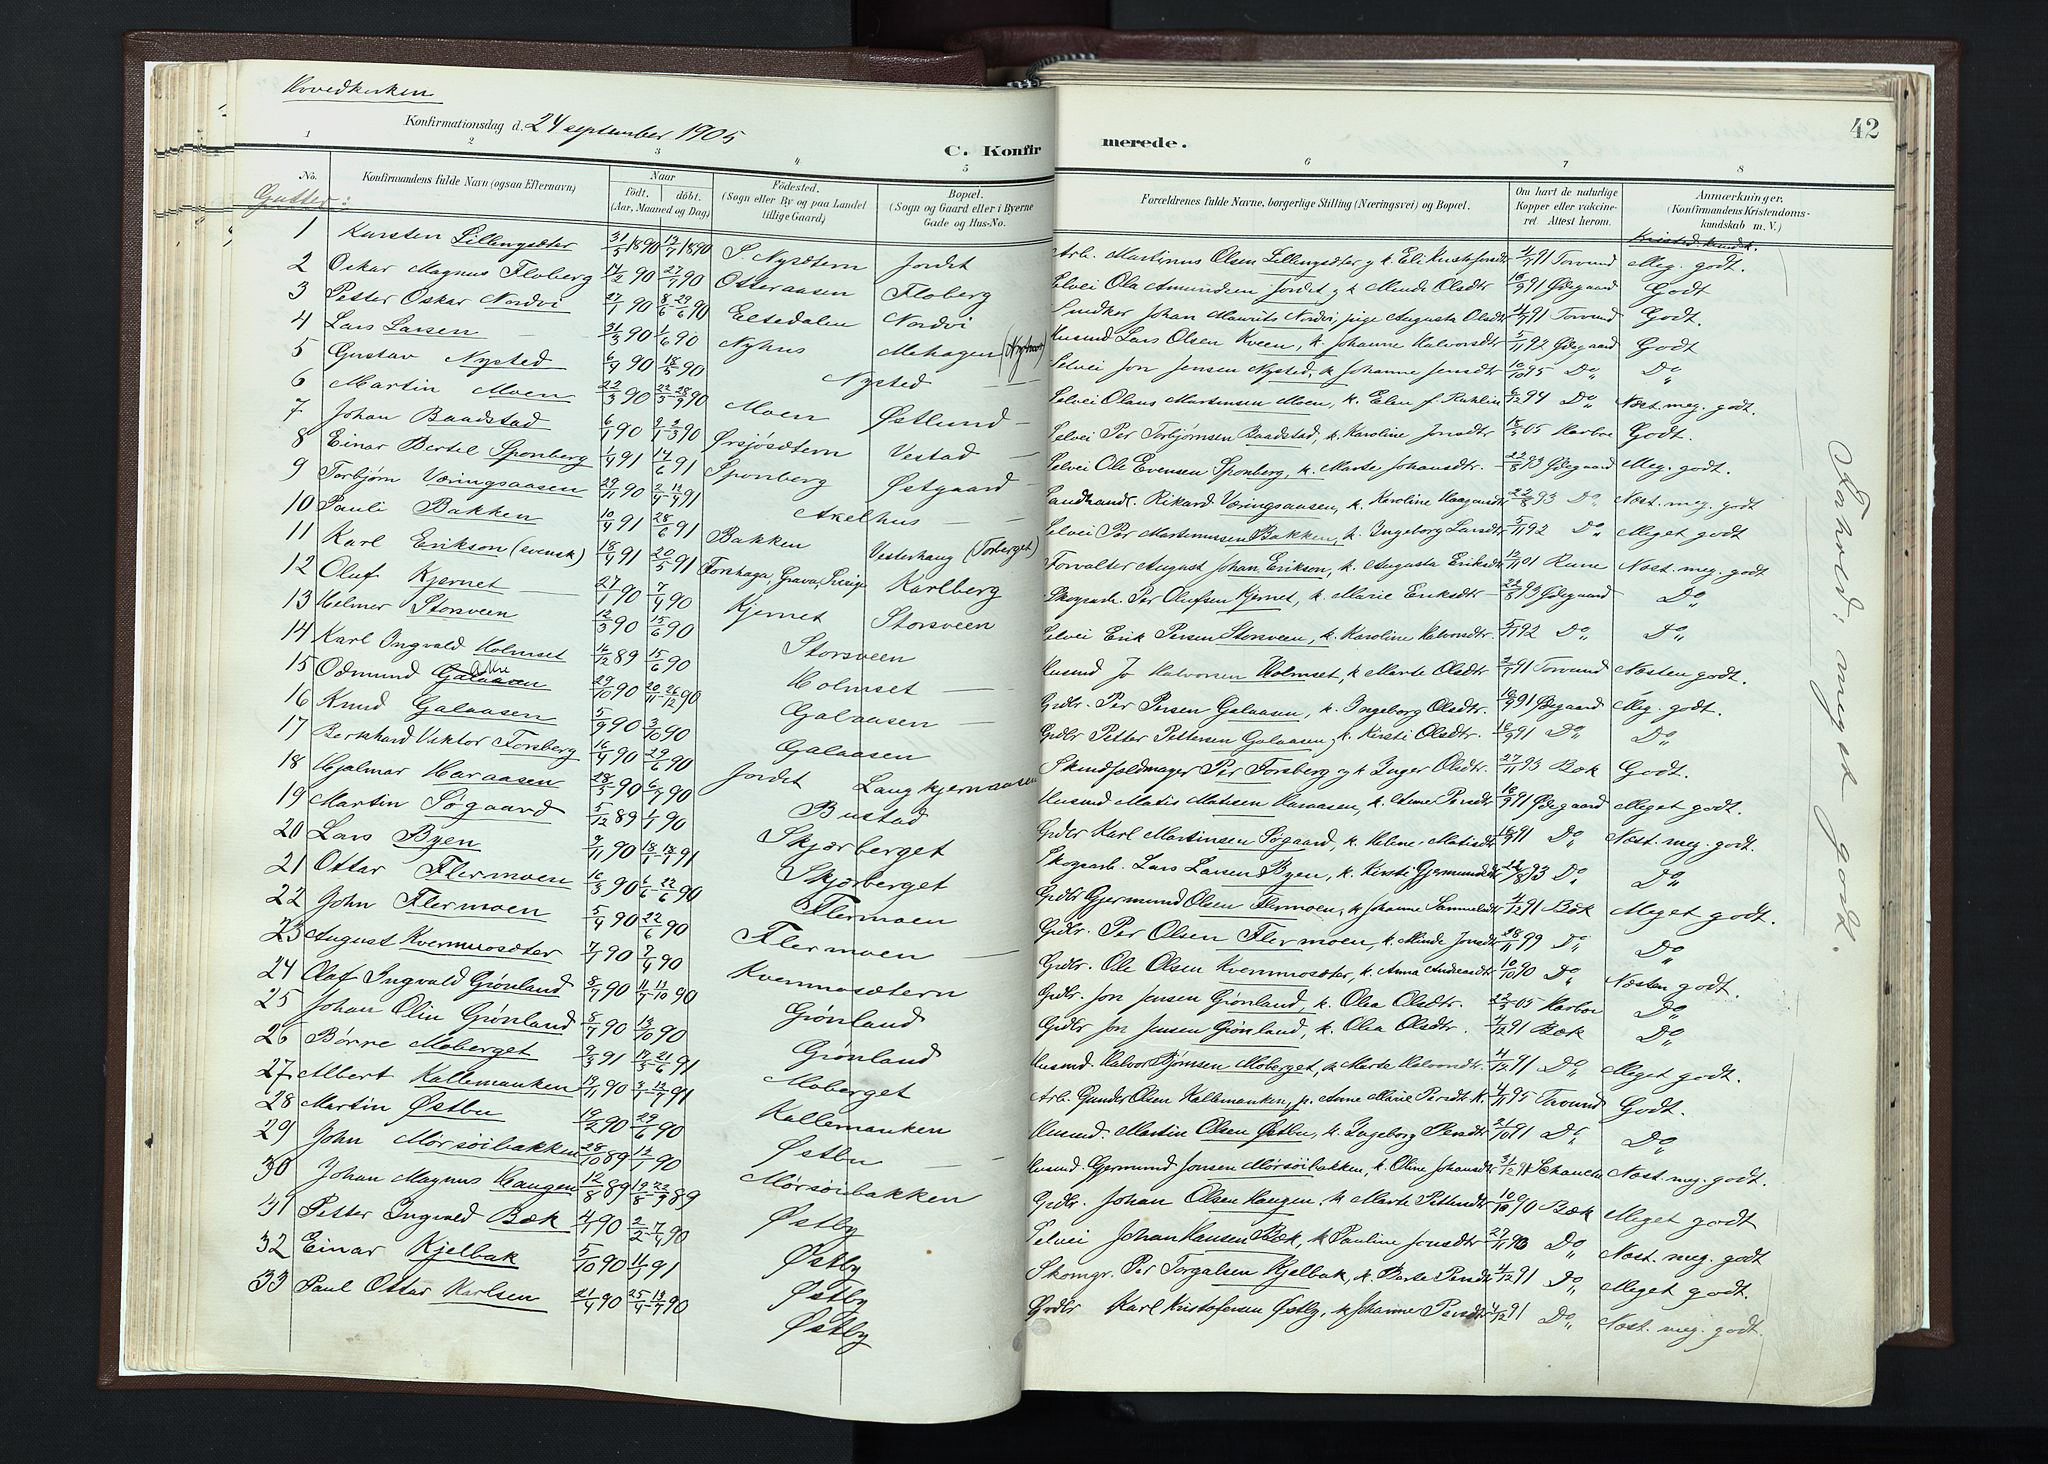 Hovedkirken
Konfirmationsdag d. 24 september 1905
C. Konfirmerede.
42
1 2 3 4 5 6 7 8
No.
Konfirmandens fulde Navn (ogsaa Efternavn)
Naar
födt. döbt.
(Aar, Maaned og Dag)
Födested.
(Sogn eller By og paa Landet tillige Gaard)
Bopæl.
(Sogn og Gaard eller i Byerne Gade og Hus-No.
Forældrenes fulde Navne, borgerlige Stilling (Næringsvei) og Bopæl.
Om havt de naturlige Kopper eller vaccineret. Attest herom.
Anmærkninger.
(Konfirmandens Kristendomskundskab m. V.)
Gutter:
1 Karsten Lillengsæter 31/5 1890 13/7 1890 S. Nysætern Jordet Arb. Martinus Olsen Lillengsæter Torvund Meg. godt.
2 Oskar Magnus Floberg 90 27/7 90 Osteraasen Floberg Selvei Ola Amundsen Jordet Olsdtr Ødegaard Godt
3 Petter Oskar Nordvi 90 90 Elsedalen Nordvi Snedker Johan Maurits Nordvi, pige Augusta Olsdtr Torvund Godt.
4 Lars Larsen 31/3 90 1/6 90 Nyhus Mehagen (Nyhus) Husmd Lars Olsen Kveen, k. Johanne Halvorsdtr 5/11 92 Ødegaard Godt
5 Gustav Nysted 90 18/5 90 Nysted Selvei Jon Jensen Nysted, k Johanne Jensdtr 10/10 95 Do
6 Martin Moen 22/3 90 90 Moen Østlund Selvei Olaus Martinsen Moen, k. Elen 94 Do Næst. meg. godt.
7 Johan Baadstad 6/1 90 90 Ørsjøsætern Vestad Selvei Per Torbjørnsen Baadstad, k. Karoline Jonsdtr 05 Harboe Godt.
8 Einar Bertil Sponberg 1/4 91 14/6 91 Sponberg Østgaard Selvei Ole Evensen Sponberg, k. Marte Johansdtr. 22/3 93 Ødegaard Meg. godt.
9 Torbjørn Væringsaasen 29/11 90 91 Akelhus Landhandl. Rikard Væringsaasen, k. Karoline Haagensdtr 93 Do Næst. meg. godt
10 Pauli Bakken 10/4 91 28/6 91 Bakken Vesterhaug (Torberget) Selvei Per Martinussen Bakken, k Ingeborg Larsdtr 5/11 92 Do Meget godt
11 Karl Erikson (svensk) 18/4 91 20/5 91 Forshaga, Grava, Karlberg Forvalter August Johan Erikson, k. Augusta Eriksdtr 01 Rune Næst. meg. godt
12 Oluf Kjernet 27/1 90 7/4 90 Kjernet Storsveen Skogarb. Per Olufsen Kjernet, k. Marie Eriksdtr 22/3 93 Ødegaard Do
13 Helmer Storsveen 12/3 90 15/6 90 Storsveen Selvei Erik Persen Storsveen, k. Karoline Halvorsdtr. 5/11 92 Do Do
14 Karl Ongvald Holmset 89 15/6 90 Holmset Husmd Jo Halvorsen Holmset, k Marte Olsdtr 91 Torvund Næsten godt.
15 Odmund Galaaen 29/10 90 90 Galaasen Grdbr. Per Persen Galaasen, k. Ingeborg Olsdtr. 91 Ødegaard Meg. godt.
16 Knud Galaasen 5/9 90 3/10 90 Galaasen Grdbr Petter Pettersen Galaasen, k Kirsti Olsdtr. 91 Do Do
17 Bernhard Viktor Forsberg 90 29/6 90 Jordet Langkjernaasen Per Forsberg og k Inger Olsdtr. 27/11 93 Bæk Godt.
18 Hjalmar Haraasen 28/3 90 6/7 90 Bustad Husmd Matis Matisen Haraasen, k Anne Persdtr 91 Ødegaard Meget godt.
19 Martin Søgaard 5/12 89 90 Skjærberget Grdbr Karl Martinsen Søgaard, k Helene Matisdtr 91 Do Næst. meg. godt.
20 Lars Byen 9/11 90 91 Skjærberget Skogarb. Lars Larsen Byen, k. Kirsti Gjermundsdtr 93 Do Do
21 Ottar Flermoen 16/3 90 90 Flermoen Grdbr Gjermund Olsen Flermoen, k Johanne Samuelsdtr 4/12 91 Bæk Meget godt.
22 John Flermoen 5/4 90 22/6 90 Flermoen Grdbr. Per Olsen Flermoen, k. Minda Jonsdtr 28/11 99 Do Do
23 August Kvernmosæter 90 7/4 90 Kvernmosætern Grdbr. Ole Olsen Kvernmosæter, k. Anna Andreasdtr 10/10 90 Do Næsten godt.
24 Olaf Ingvald Grønland 8/7 90 90 Grønland Grdbr. Jon Jensen Grønland, k. Olea Olsdtr. 05 Harboe Do
25 Johan Olin Grønland 8/7 90 90 Grønland Grdbr Jon Jensen Grønland, k. Olea Olsdtr. 4/12 91 Bæk Do
26 Børre Moberget 9/3 91 91 Moberget Husmd. Halvor Bjørnsen Moberget, k Marte Halvorsdtr 4/12 91 Do Meget godt.
27 Albert Kallemanken 90 91 Kallemanken Arb. Gunder Olsen Kallemanken, p. Anne Marie Persdtr. 4/11 95 Torvund Godt.
28 Martin Østbu 90 29/6 90 Østbu Husmd. Martin Olsen Østbu, k. Ingeborg Persdtr 91 Do Do
29 John Mørsøibakken 28/10 89 90 Mørsøibakken Husmd. Gjermund Jonsen Mørsøibakken, k. Oline Johansdtr 31/12 91 Schanche Næst. meg. godt.
30 Johan Magnus Haugen 12/8 89 89 Østby Grdbr. Johan Olsen Haugen, k Marte Pettersdtr 10/10 90 Bæk Meget godt
31 Petter Ingvald Bæk 90 90 Østby Selvei Johan Hansen Bæk, k Pauline Jonsdtr 27/11 90 Do Næst. meg. godt
32 Einar Kjelbak 5/10 90 91 Østby Skomgr. Per Torgalsen Kjelbak, k. Berte Persdtr 4/12 91 Do Meget godt.
33 Paul Ottar Karlsen 21/4 90 90 Østby Grdbr Karl Kristofersen Østby, k Johanne Persdtr 4/12 91 Do Næst. meg. godt.
Forhold: meget godt.